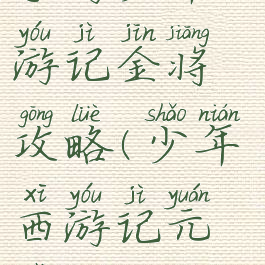 yóu jì jīn jiāng
游记金将
gōng lüè shǎo nián
攻略(少年
xī yóu jì yuán
西游记元